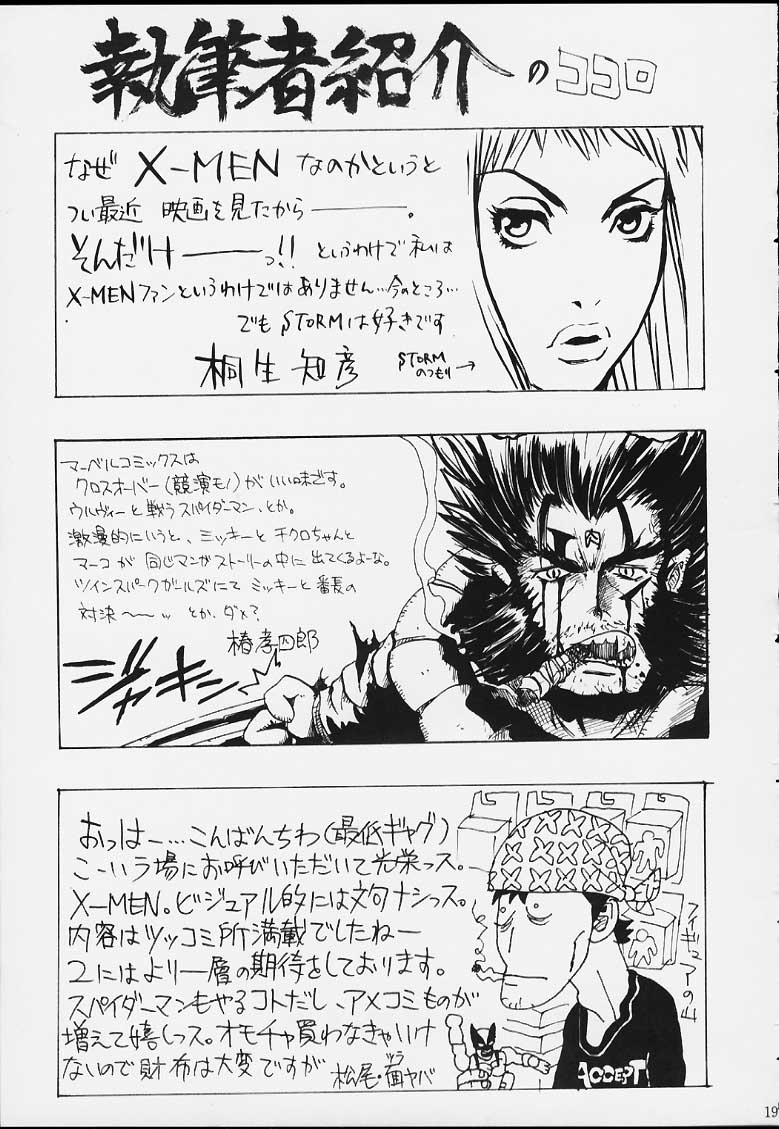 執筆者紹介のココロ
なぜ X-MEN なのかというと
つい最近 映画を見たから―――。
そんだけ――っ!! というわけで私は
X-MENファンというわけではありません…今のところ…
でも STORMは好きです
桐生知彦
STORM
のつもり→
マーベルコミックスは
クロスオーバー(競演モノ)がいい味です。
ウルヴィーと戦うスパイダーマン、とか。
激漫的にいうと、ミッキーとチクロちゃんと
マーコが同じマンガストーリーの中に出てくるよーな。
ツインスパークガールズにてミッキーと番長の
対決〜〜〜 とか、ダメ?
椿孝四郎
ジャキン
おっはー…こんばんちわ(最低ギャグ)
こーいう場にお呼びいただいて光栄っス。
X-MEN。ビジュアル的には文句ナシっス。
内容はツッコミ所満載でしたねー
2にはより一層の期待をしております。
スパイダーマンもやるコトだし、アメコミものが
増えて嬉しっス。オモチャ買わなきゃいけ
ないので財布は大変ですが
松尾・面ヤバ
ヅラ
フィギュアの山
ACCEPT
19